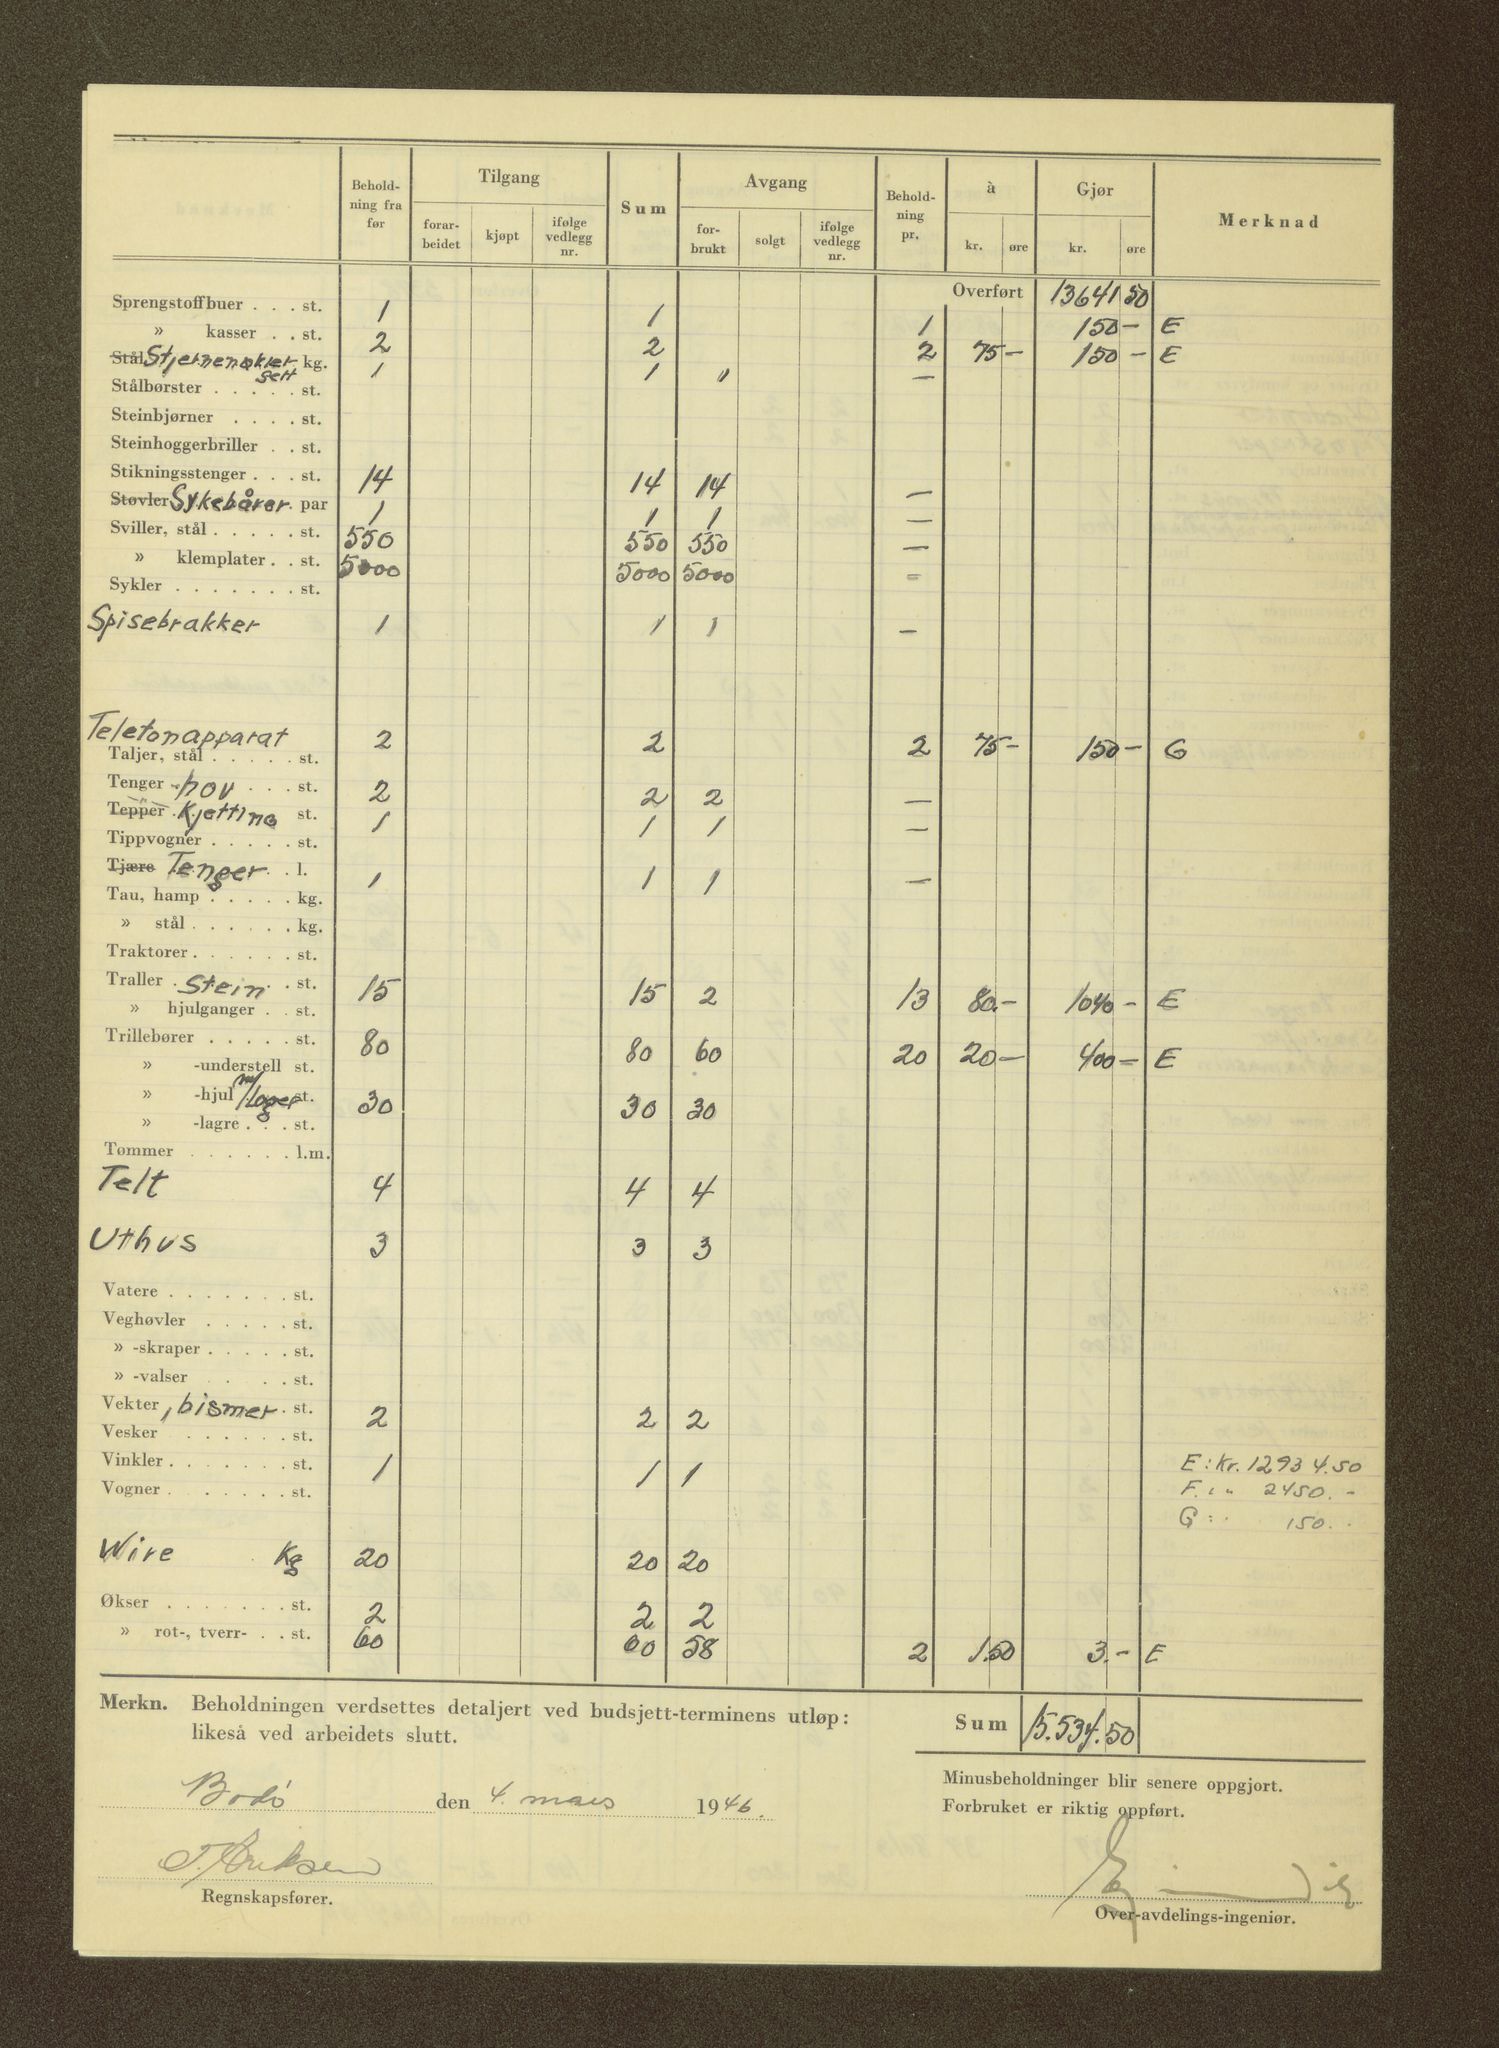 Behold-
ning fra
før
Tilgang
forar-
beidet
kjøpt
ifølge
vedlegg
nr.
Sum
Avgang
for-
brukt
solgt
ifølge
vedlegg
nr.
Behold-
ning
pr.
à
kr. øre
Gjør
kr. øre
Merknad
Overført 13641 50
Sprengstoffbuer . . . st. 1 1 1 150 - E
» kasser . . st. 2 2 2 75 - 150 - E
Stål Stjernenøkler kg. 1 1 " —
sett
Stålbørster . . . . . st.
Steinbjørner . . . . st.
Steinhoggerbriller . . st.
Stikningsstenger . . . st. 14 14 14 —
Støvler Sykebårer. par 1 1 1 —
Sviller, stål . . . . . st. 550 550 550 —
» klemplater . . st. 5000 5000 5000 =
Sykler . . . . . . . st.
Spisebrakker 1 1 1 —
Telefonapparat 2 2 2 75 - 150 - G
Taljer, stål . . . . . st.
Tenger -hov . . . st. 2 2 2 —
Tepper Kjetting st. 1 1 1 —
Tippvogner . . . . . st.
Tjære Tenger . . l. 1 1 1 —
Tau, hamp . . . . . kg.
» stål . . . . . . kg.
Traktorer . . . . . . st.
Traller . Stein . . st. 15 15 2 13 80.- 1040 - E
» hjulganger . . st.
Trillebører . . . . . st. 80 80 60 20 20 - 400 = E
» -understell st.
» -hjul m/lager st. 30 30 30
» -lagre . . . st.
Tømmer . . . . . . l.m.
Telt 4 4 4
Uthus 3 3 3
Vatere . . . . . . . st.
Veghøvler . . . . . st.
» -skraper . . . . . st.
» -valser . . . . st.
Vekter, bismer . st. 2 2 2
Vesker . . . . . . st.
Vinkler . . . . . . . st. 1 1 1
Vogner . . . . . . . st.
E: Kr. 12934.50
F. : " 2450. -
G : . 150. . .
Wire . Kg 20 20 20
Økser . . . . . . . st. 2 2 2
» rot-, tverr- . . st. 60 60 58 2 1.50 3.- E
Merkn. Beholdningen verdsettes detaljert ved budsjett-terminens utløp:
likeså ved arbeidets slutt.
Sum 15.534.50
Minusbeholdninger blir senere oppgjort.
Forbruket er riktig oppført.
Bodø den 4. mars 1946.
T. Eriksen
Regnskapsfører.
Over-avdelings-ingeniør.